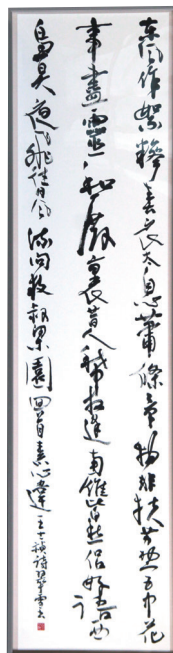 東風作絮糝春衣太息蕭條景物非扶荔宮中花
事盡靈和殿裏昔人稀相逢南雁皆愁侶好語西
烏莫夜飛往日風流問枚叔梁園回首素心違王士禎詩